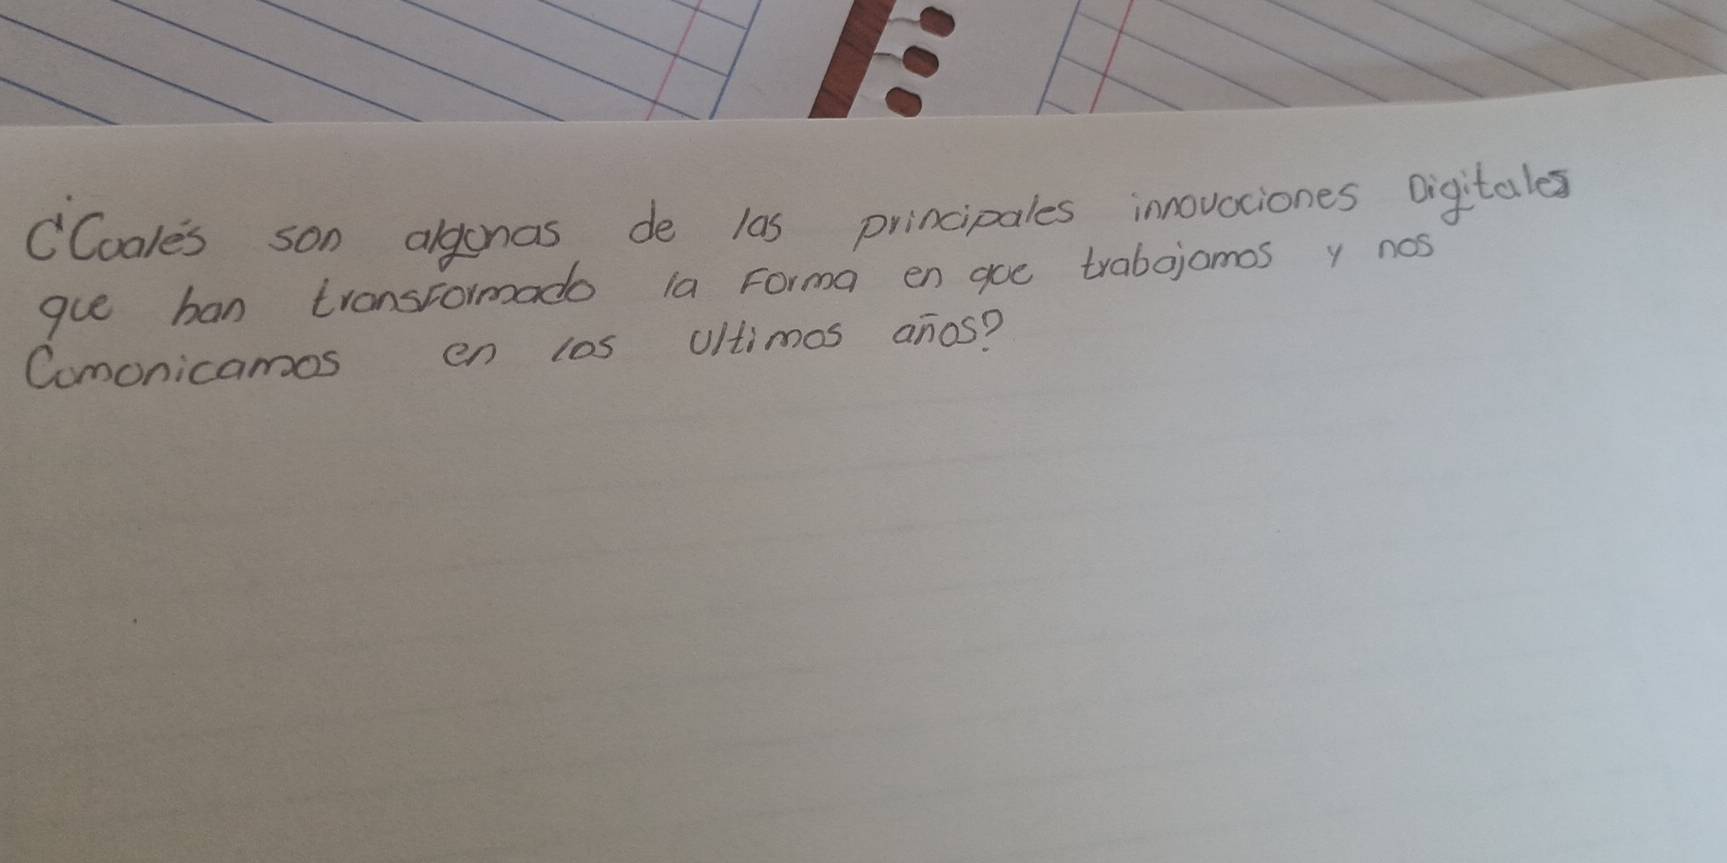 ¿Cuales son algunas de las principales innovaciones Digitales
que han transformado la Forma en que trabajamos y nos
Comunicamos en los ultimos años?